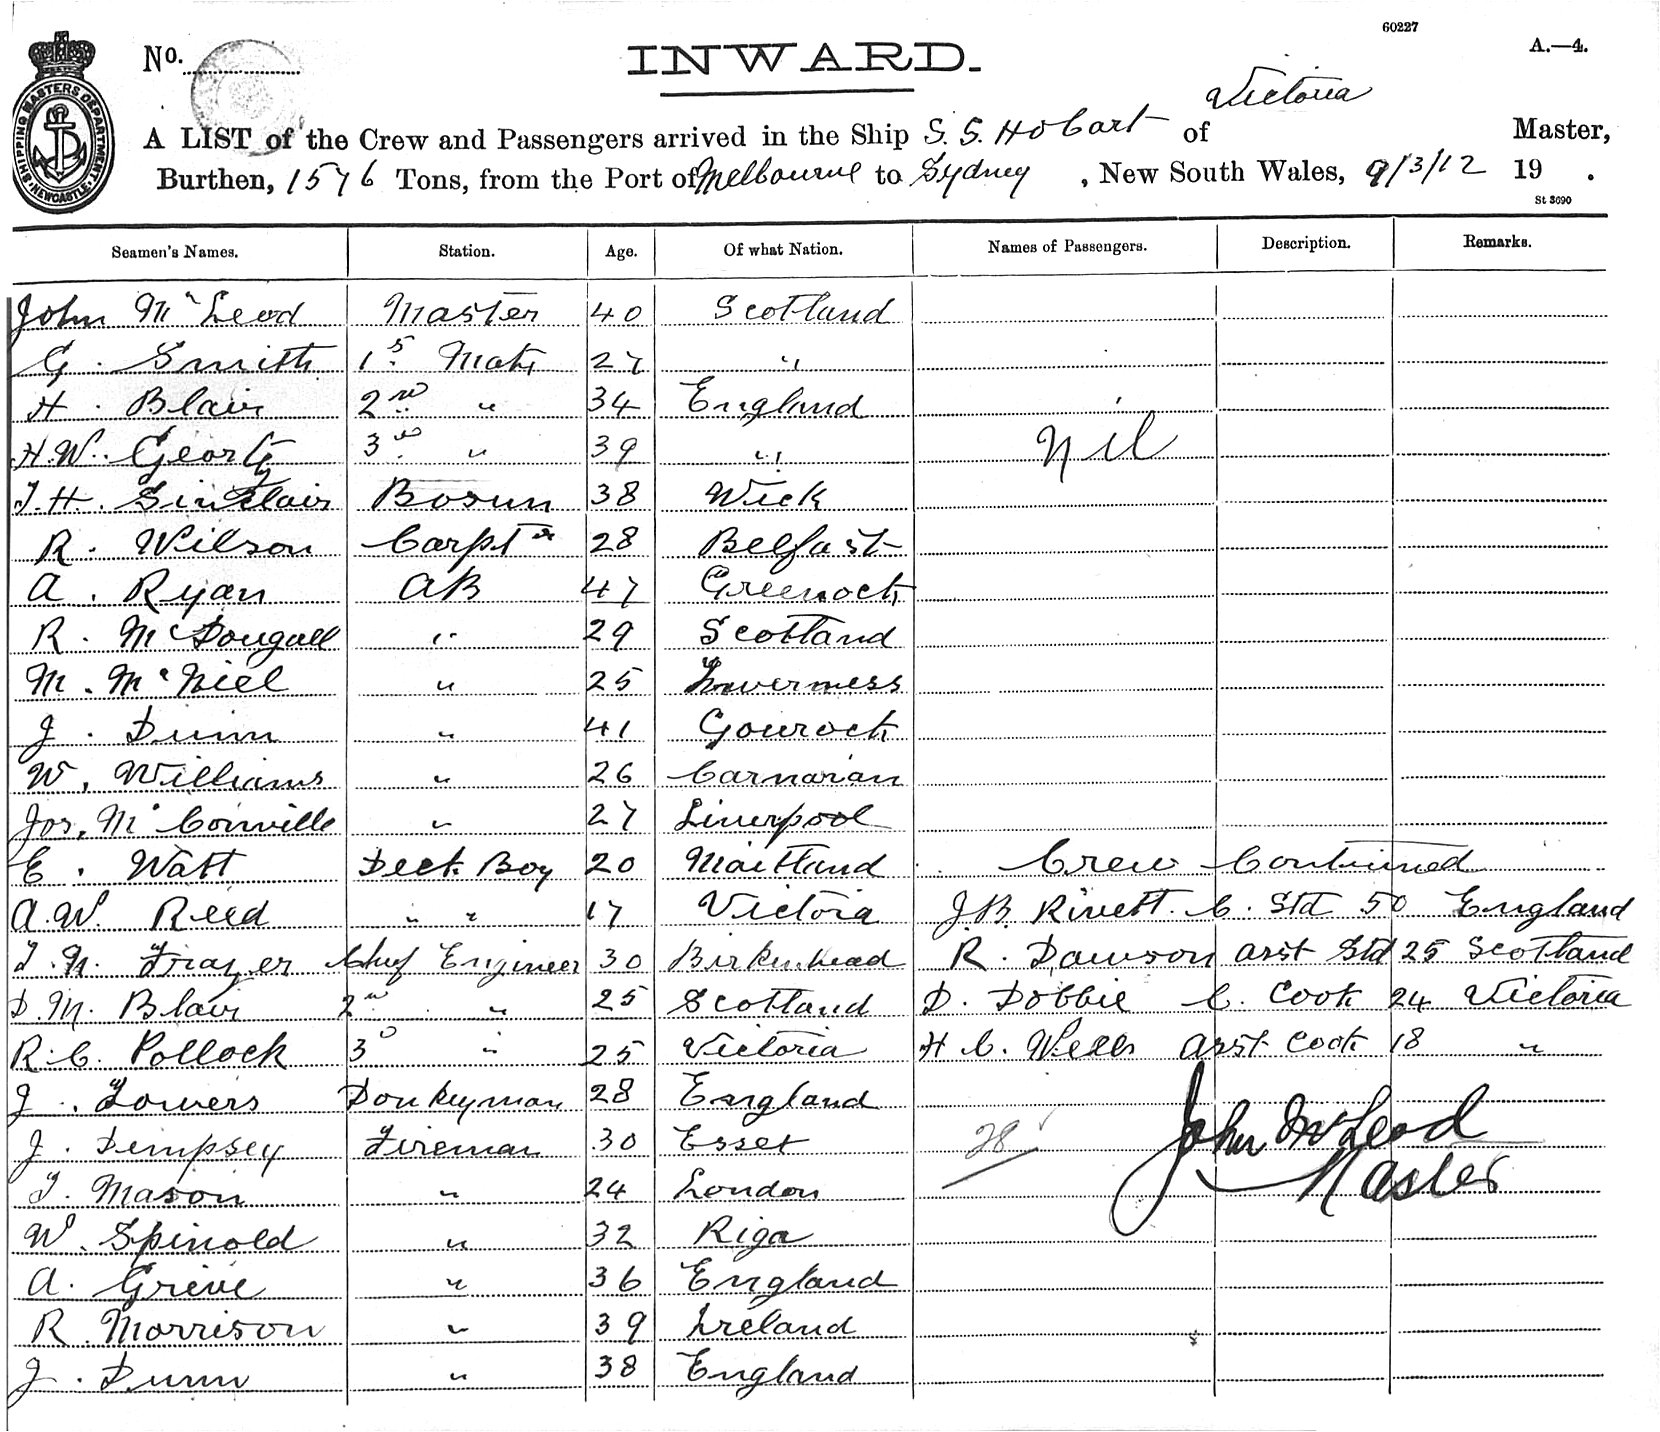 60227
No. INWARD. A.—4.
Victoria
A LIST of the Crew and Passengers arrived in the Ship S. S. Hobart of Master,
Burthen, 1576 Tons, from the Port of Melbourne to Sydney, New South Wales, 9/3/12 19 .
St 3690
SHIPPING MASTERS DEPARTMENT NEWCASTLE
Seamen's Names. Station. Age. Of what Nation. Names of Passengers. Description. Remarks.
John McLeod Master 40 Scotland
G. Smith 1st Mate 27 "
H. Blair 2nd " 34 England
H.W. 3rd " 39 " Nil
T.H. Sinclair Bosun 38 Wick
R. Wilson Carptr 28 Belfast
A. Ryan AB 47 Greenock
R. McDougall " 29 Scotland
M. McNiel " 25 Inverness
J. Dunn " 41 Gourock
W. Williams " 26 Carnarvan
Jos. McConville " 27 Liverpool
E. Watt Deck Boy 20 Maitland Crew Continued
A.W. Reed " " 17 Victoria J.B. Rivett. C. Std 50 England
T.N. Frazer Chief Engineer 30 Birkenhead R. Dawson asst Std 25 Scotland
D.M. Blair 2nd " 25 Scotland D. Dobbie C. Cook 24 Victoria
R.C. Pollock 3d " 25 Victoria H C. Wells asst Cook 18 "
J. Towers Donkeyman 28 England
J. Dempsey Fireman 30 Essex 28 John McLeod
T. Mason " 24 London Master
W. Spinold " 32 Riga
A. Grieve " 36 England
R. Morrison " 39 Ireland
J. Dunn " 38 England